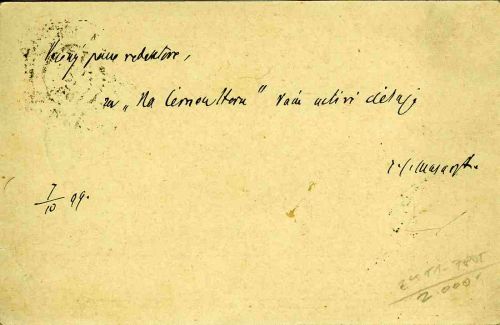 Vážený pane redaktore,
za „Na Černou Horu" Vám uctivě děkuje
T. G. Masaryk.
7/10 99.
2.000